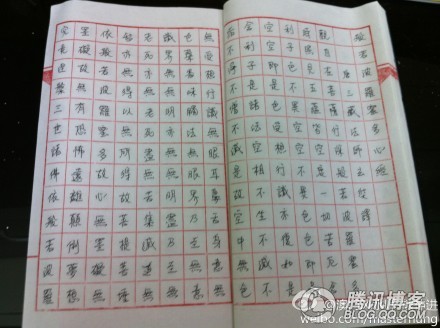 般若波羅蜜多心經
觀自在菩薩行深般若波羅蜜多
時照見五蘊皆空度一切苦厄舍
利子色不異空空不異色色即是
空空即是色受想行識亦復如是
舍利子是諸法空相不生不滅不
垢不淨不增不減是故空中無色
無受想行識無眼耳鼻舌身意無
色聲香味觸法無眼界乃至無意
識界無無明亦無無明盡乃至無
老死亦無老死盡無苦集滅道無
智亦無得以無所得故菩提薩埵
依般若波羅蜜多故心無罣礙無
罣礙故無有恐怖遠離顛倒夢想
究竟涅槃三世諸佛依般若波羅
腾讯博客
BLOG.QQ.COM
weibo.com/masterhung